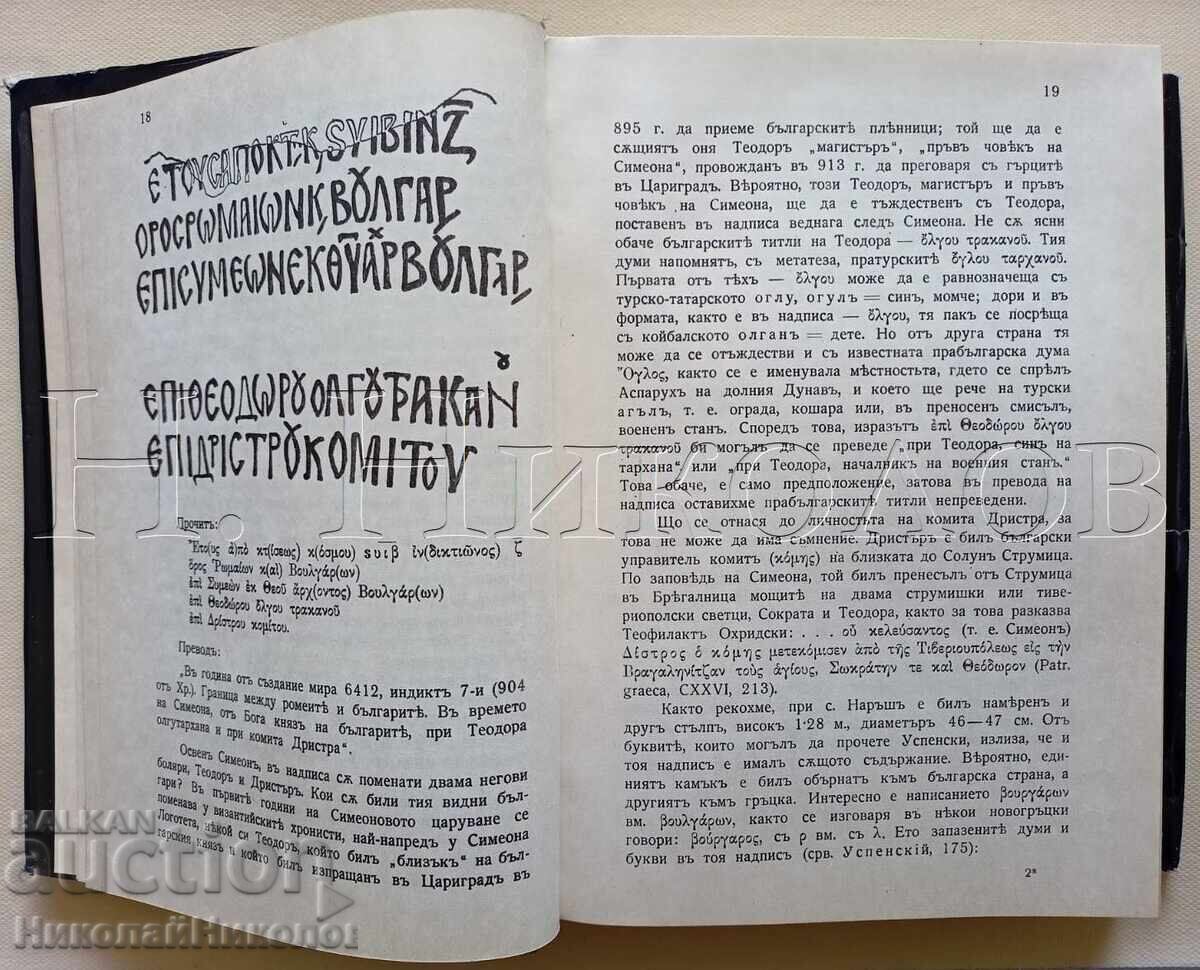 18
ΕΤΟΥСΑΠΟΚΤ,Κ,ЅΥΙΒΙΝΖ̅
ΟΡΟСΡѠΜΑΙѠΝΚ,ΒȢΛΓΑΡ,
ΕΠΙСΥΜΕѠΝΕΚΘΥ̅ΑΡ̆ΒȢΛΓΑΡ,
ΕΠΙΘΕΟΔѠΡȢΟΛΓȢΤΡΑΚΑΝȢ
ΕΠΙΔΡΙСΤΡȢΚΟΜΙΤΟΥ
Прочитъ:
Ἔτο(υς ἀ)πὸ κτ(ίσεως) κ(όσμου) ѕυιβ ἰν(δικτιῶνος) ζ
ὅρος Ῥωμαίων κ(αὶ) Βουλγάρ(ων)
ἐπὶ Συμεὼν ἐκ Θεοῦ ἄρχ(οντος) Βουλγάρ(ων)
ἐπὶ Θεοδώρου ὄλγου τρακανοῦ
ἐπὶ Δρίστρου κομίτου.
Преводъ:
„Въ година отъ създание мира 6412, индиктъ 7-и (904
отъ Хр.). Граница между ромеитѣ и българитѣ. Въ времето
на Симеона, отъ Бога князъ на българитѣ, при Теодора
олгутархана и при комита Дристра“.
Освенъ Симеонъ, въ надписа сѫ поменати двама негови
боляри, Теодоръ и Дристъръ. Кои сѫ били тия видни бъл-
гари? Въ първитѣ години на Симеоновото царуване се
поменава у византийскитѣ хронисти, най-напредъ у Симеона
Логотета, нѣкой си Теодоръ, който билъ „близъкъ“ на бъл-
гарския князъ и който билъ изпращанъ въ Цариградъ въ
19
895 г. да приеме българскитѣ плѣнници; той ще да е
сѫщиятъ оня Теодоръ „магистъръ“, „пръвъ човѣкъ на
Симеона“, провожданъ въ 913 г. да преговаря съ гърцитѣ
въ Цариградъ. Вѣроятно, този Теодоръ, магистъръ и пръвъ
човѣкъ на Симеона, ще да е тъждественъ съ Теодора,
поставенъ въ надписа веднага следъ Симеона. Не сѫ ясни
обаче българскитѣ титли на Теодора — ὄλγου τρακανοῦ. Тия
думи напомнятъ, съ метатеза, пратурскитѣ ὄγλου ταρχανοῦ.
Първата отъ тѣхъ — ὄλγου може да е равнозначеща съ
турско-татарското оглу, огулъ = синъ, момче; дори и въ
формата, както е въ надписа — ὄλγου, тя пакъ се посрѣща
съ койбалското олганъ = дете. Но отъ друга страна тя
може да се отъждестви и съ известната прабългарска дума
Ὄγλος, както се е именувала мѣстностьта, гдето се спрѣлъ
Аспарухъ на долния Дунавъ, и което ще рече на турски
агълъ, т. е. ограда, кошара или, въ преносенъ смисълъ,
воененъ станъ. Споредъ това, изразътъ ἐπὶ Θεοδώρου ὄλγου
τρακανοῦ би могълъ да се преведе „при Теодора, синъ на
тархана“ или „при Теодора, началникъ на военния станъ.“
Това обаче, е само предположение, затова въ превода на
надписа оставихме прабългарскитѣ титли непреведени.
Що се отнася до личностьта на комита Дристра, за
това не може да има съмнение. Дристъръ е билъ български
управитель комитъ (κόμης) на близката до Солунъ Струмица.
По заповѣдь на Симеона, той билъ пренесълъ отъ Струмица
въ Брѣгалница мощитѣ на двама струмишки или тиве-
риополски светци, Сократа и Теодора, както за това разказва
Теофилактъ Охридски: . . . οὗ κελεύσαντος (т. е. Симеонъ)
Δίστρος ὁ κόμης μετεκόμισεν ἀπὸ τῆς Τιβεριουπόλεως εἰς τὴν
Βραγαληνίτζαν τοὺς ἁγίους, Σωκράτην τε καὶ Θεόδωρον (Patr.
graeca, CXXVI, 213).
Както рекохме, при с. Наръшъ е билъ намѣренъ и
другъ стълпъ, високъ 1·28 м., диаметъръ 46—47 см. Отъ
буквитѣ, които могълъ да прочете Успенски, излиза, че и
тоя надписъ е ималъ сѫщото съдържание. Вѣроятно, еди-
ниятъ камъкъ е билъ обърнатъ къмъ българска страна, а
другиятъ къмъ гръцка. Интересно е написанието βουργάρων
вм. βουλγάρων, както се изговаря въ нѣкои новогръцки
говори: βούργαρος, съ ρ вм. съ λ. Ето запазенитѣ думи и
букви въ тоя надписъ (срв. Успенскій, 175):
2*
Н. Николов
BALKAN
auction
НиколайНиколов